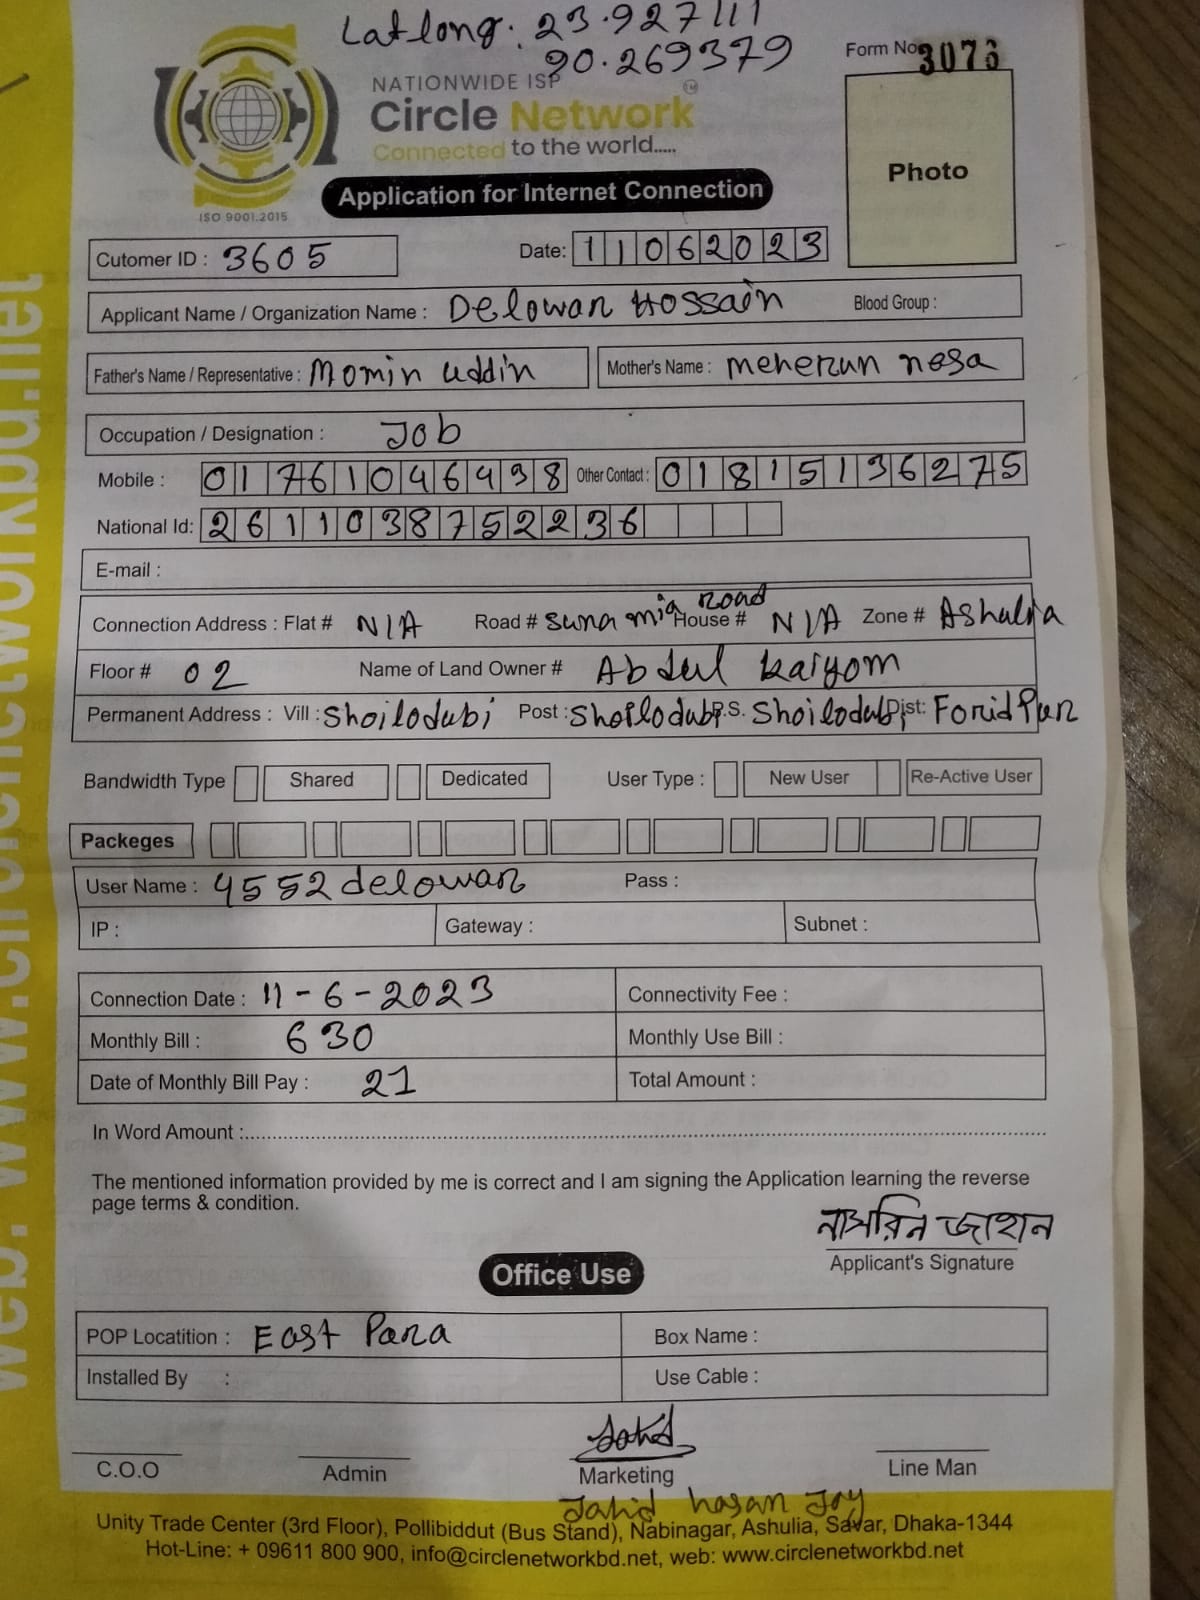 Latlong: 23.927111
90.269379
Form No. 3073
NATIONWIDE ISP
Circle Network
TM
Connected to the world.....
ISO 9001.2015
Application for Internet Connection
Photo
Cutomer ID : 3605 Date: 11062023
Applicant Name / Organization Name : Delowar Hossain Blood Group :
Father's Name / Representative : Momin uddin Mother's Name : meherun nesa
Occupation / Designation : Job
Mobile : 01761046498 Other Contact : 01815136275
National Id: 2611038752236
E-mail :
Connection Address : Flat # N/A Road # suna mia Road House # N/A Zone # Ashulia
Floor # 02 Name of Land Owner # Abdul kaiyom
Permanent Address : Vill : Shoilodubi Post : Shoilodubi P.S. Shoilodubi Dist: Foridpur
Bandwidth Type Shared Dedicated User Type : New User Re-Active User
Packeges
User Name : 4552delowar Pass :
IP : Gateway : Subnet :
Connection Date : 11-6-2023 Connectivity Fee :
Monthly Bill : 630 Monthly Use Bill :
Date of Monthly Bill Pay : 21 Total Amount :
In Word Amount :
The mentioned information provided by me is correct and I am signing the Application learning the reverse
page terms & condition.
নাসরিন জাহান
Applicant's Signature
Office Use
POP Locatition : East Para Box Name :
Installed By : Use Cable :
Jahid
C.O.O Admin Marketing Line Man
Jahid hasan Joy
Unity Trade Center (3rd Floor), Pollibiddut (Bus Stand), Nabinagar, Ashulia, Savar, Dhaka-1344
Hot-Line: + 09611 800 900, info@circlenetworkbd.net, web: www.circlenetworkbd.net
web: www.circlenetworkbd.net